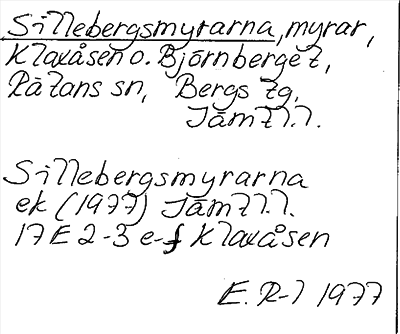 Sillebergsmyrarna, myrar,
Klaxåsen o. Björnberget,
Rätans sn, Bergs tg,
Jämtl.l.
Sillebergsmyrarna
ek (1977) Jämtl.l.
17E 2-3 e-f Klaxåsen
E. R-l 1977